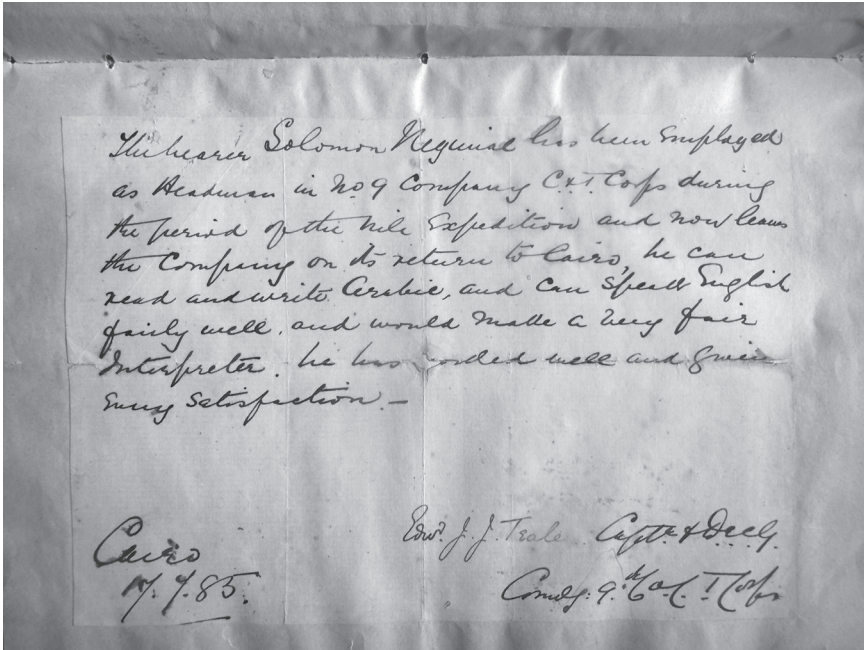 The bearer Solomon Negurial has been Employed
as Headman in No 9 Company C & T. Corps during
the period of the Nile Expedition and now leaves
the Company on its return to Cairo, he can
read and write Arabic, and can Speak English
fairly well. and would make a very fair
Interpreter. he has worked well and given
Every Satisfaction. —
Edwd. J. J. Teale Captn &
Cairo
Comdg: 9th Co. C. T Corps
85.